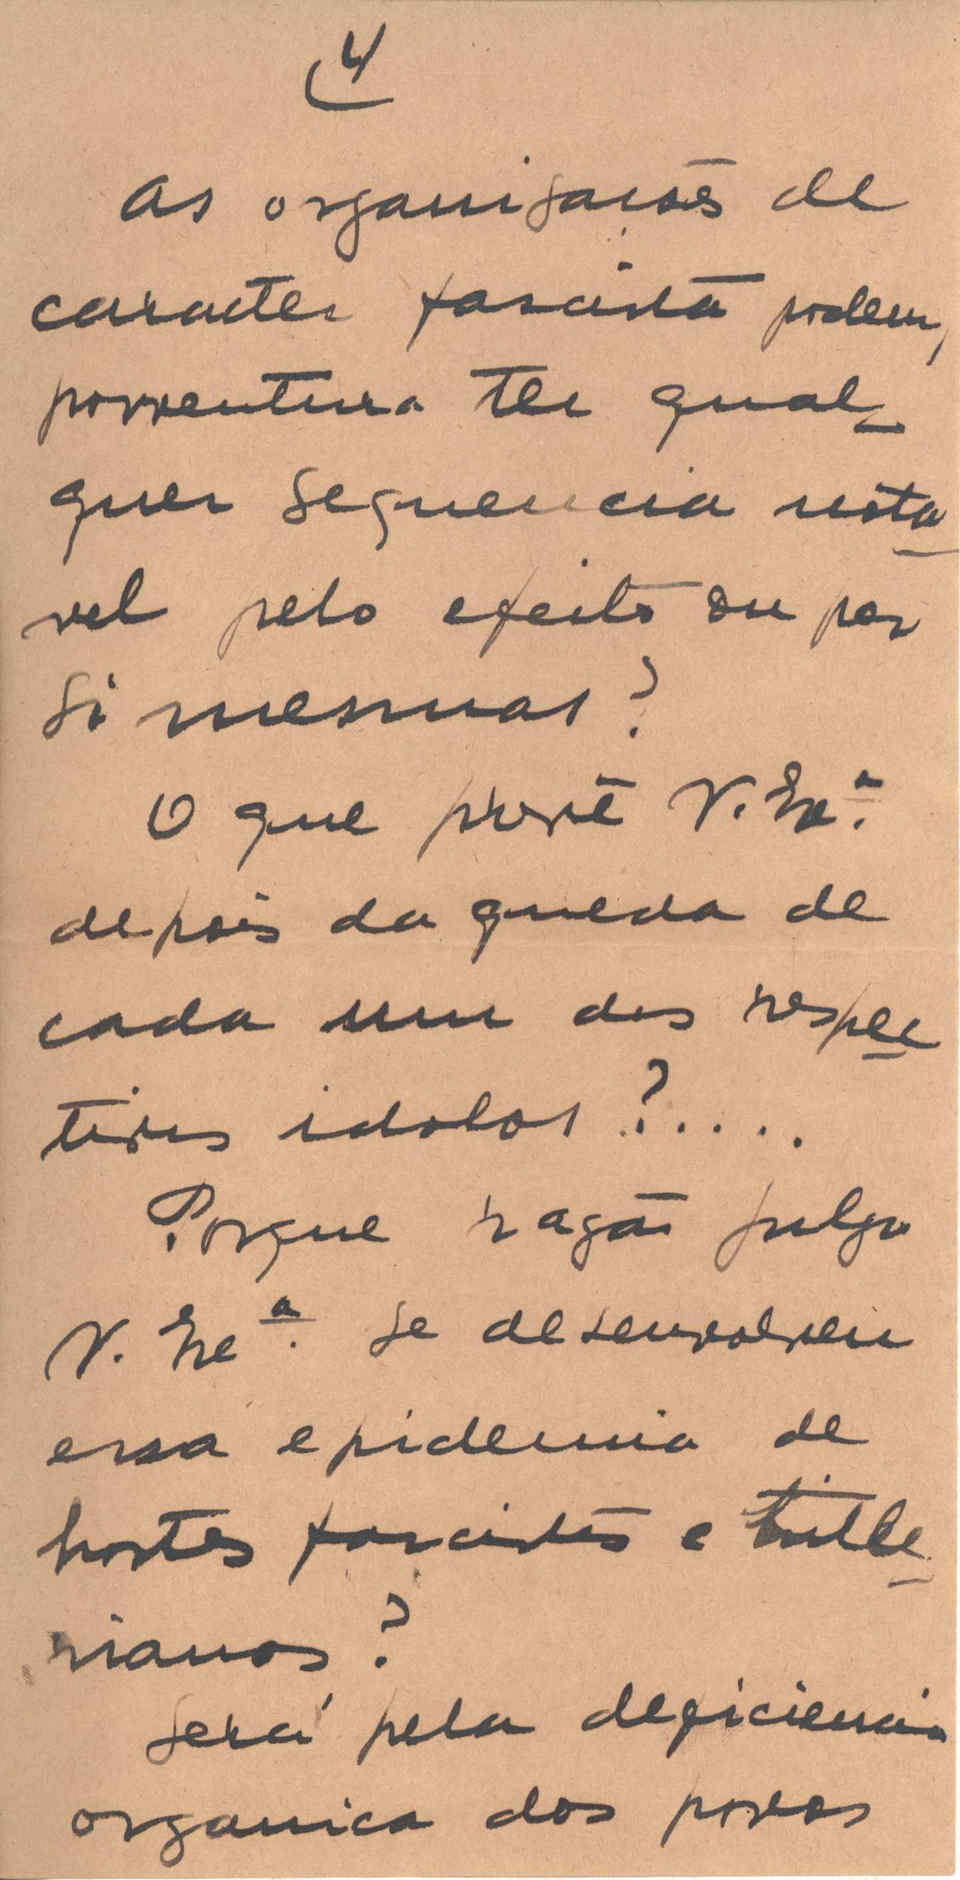 4
As organisações de
caracter fascista podem,
porventura ter qual-
quer sequencia nota
vel pelo efeito ou por
si mesmas?
O que prevê V. Exª.
depois da queda de
cada um dos respec
tivos idolos?.....
Porque razão julga
V. Exª. se desenvolveu
essa epidemia de
hostes fascistas e hitle
rianos?
Será pela deficiencia
organica dos povos